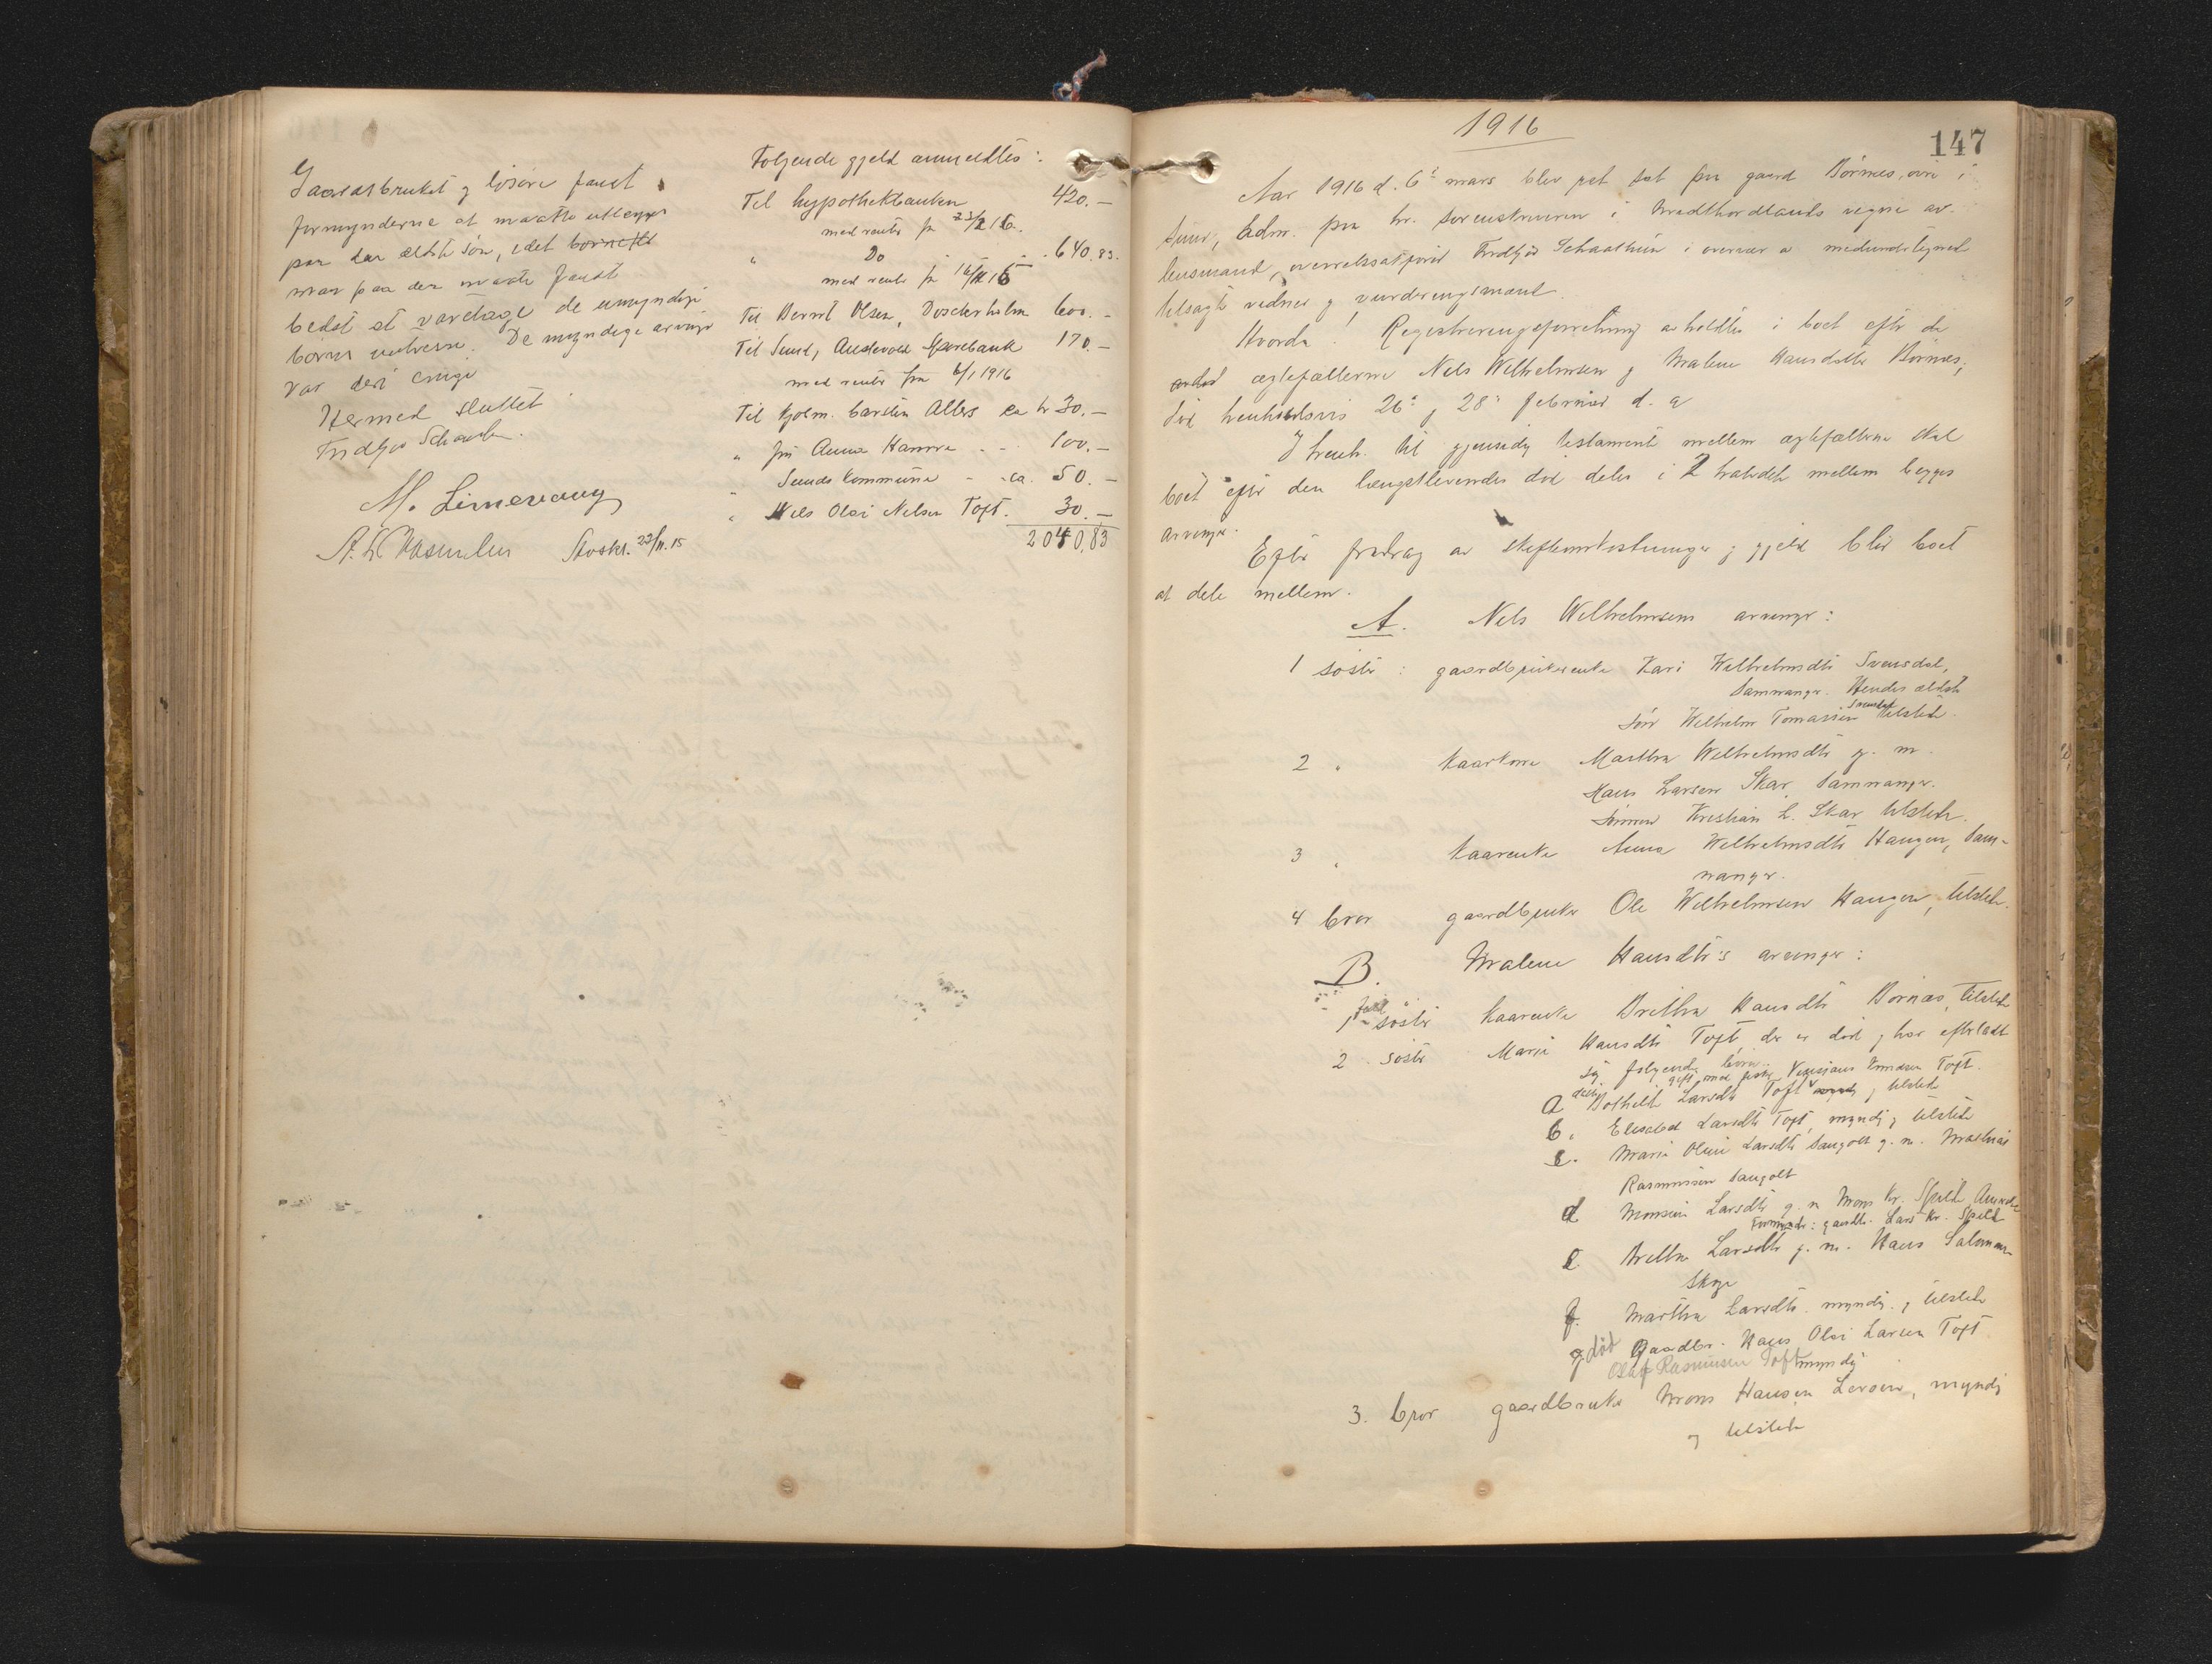 Gaardsbruket og løsøre fandt
formynderne at maatte utlægges
paa den ældste søn, idet
man paa den maate fandt
bedst at varetage de umyndige
børns interesse. De myndige arvinger
var deri enige
Hermed sluttet
Fridtjov Schaathun.
M. Limesvang
Avskr. 22/11.15
Følgende gjeld anmeldtes:
Til hypothekbanken 420.-
med renter fra 23/2 16.
" Do - - 640.83.
med renter fra 16/11 15
Til Bernt Olsen, 600.-
Til Sund, Austevold Sparebank 170.-
med renter fra 6/1 1916
Til kjøbm. Carsten Allers ca kr 30.-
" fru Anna Hamre - - 100.-
" Sunds kommune - - ca. 50.-
" Nils Olai Nelsen Toft. 30.-
2040,83
1916
147
Aar 1916 d. 6te mars blev ret sat paa gaard Børnes, øvre i
Sund, adm. paa hr. sorenskriveren i Midthordlands vegne av
lensmand, overretssakfører Fridtjov Schaathun i overvær av medundertegnede
tilsagte vidner og vurderingsmænd.
Hvorda! Registreringsforretning avholdtes i boet efter de
avdøde ægtefællerne Nels Wilhelmsen og Malene Hansdatter Børnes,
død henholdsvis 26de og 28de februar d. a
I henh. til gjensidig testament mellem ægtefællerne skal
boet efter den længstlevendes død deles i 2 halvdele mellem begges
arvinger.
Efter fradrag av skifteomkostninger og gjeld blir boet
at dele mellem.
A. Nels Wilhelmsens arvinger:
1 søster: gaardbrukerenke Kari Wilhelmsdtr Svensdal,
Samnanger. Hendes ældste
søn Wilhelm Tomassen Svensdal tilstede.
2 " kaarkone Martha Wilhelmsdtr g. m.
Hans Larsen Skar, Samnanger.
Sønnen Kristian L. Skar tilstede.
3 " kaarenke Anna Wilhelmsdtr Haugen, Sam-
nanger.
4 bror gaardbruker Ole Wilhelmsen Haugen, tilstede.
B. Malene Hansdtr's arvinger:
1 søster kaarenke Britha Hansdtr Børnes, tilstede
2. søster Marie Hansdtr Toft, der er død og har efterladt
sig følgende børn.
gift med fisker Toft.
a Bothilde Larsdtr Toft og tilstede
b. Elisabet Larsdtr Toft, myndig, tilstede
c. Marie Oline Larsdtr Sangolt g. m. Mathias
Rasmussen Sangolt
d Monsine Larsdtr g. m Mons Kr. Spilde, Amerika
Formynder: gaardbr. Lars Kr. Spilde
e Britha Larsdtr g. m. Hans Salomonsen
Skoge
f. Martha Larsdtr. myndig. og tilstede
g. død Gaardbr. Hans Olai Larsen Toft
Olaf Rasmussen Toft myndig
3. bror gaardbruker Mons Hansen Lerøen, myndig
og tilstede